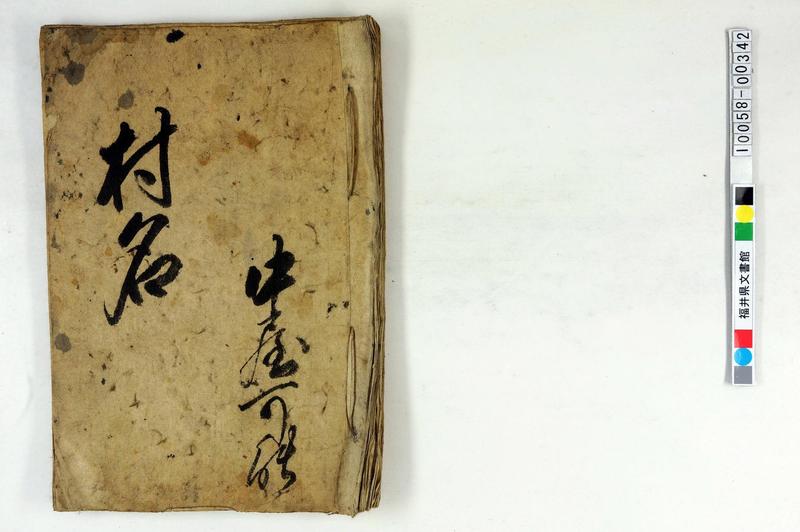 村名
中屋可能
10058-00342
福井県文書館